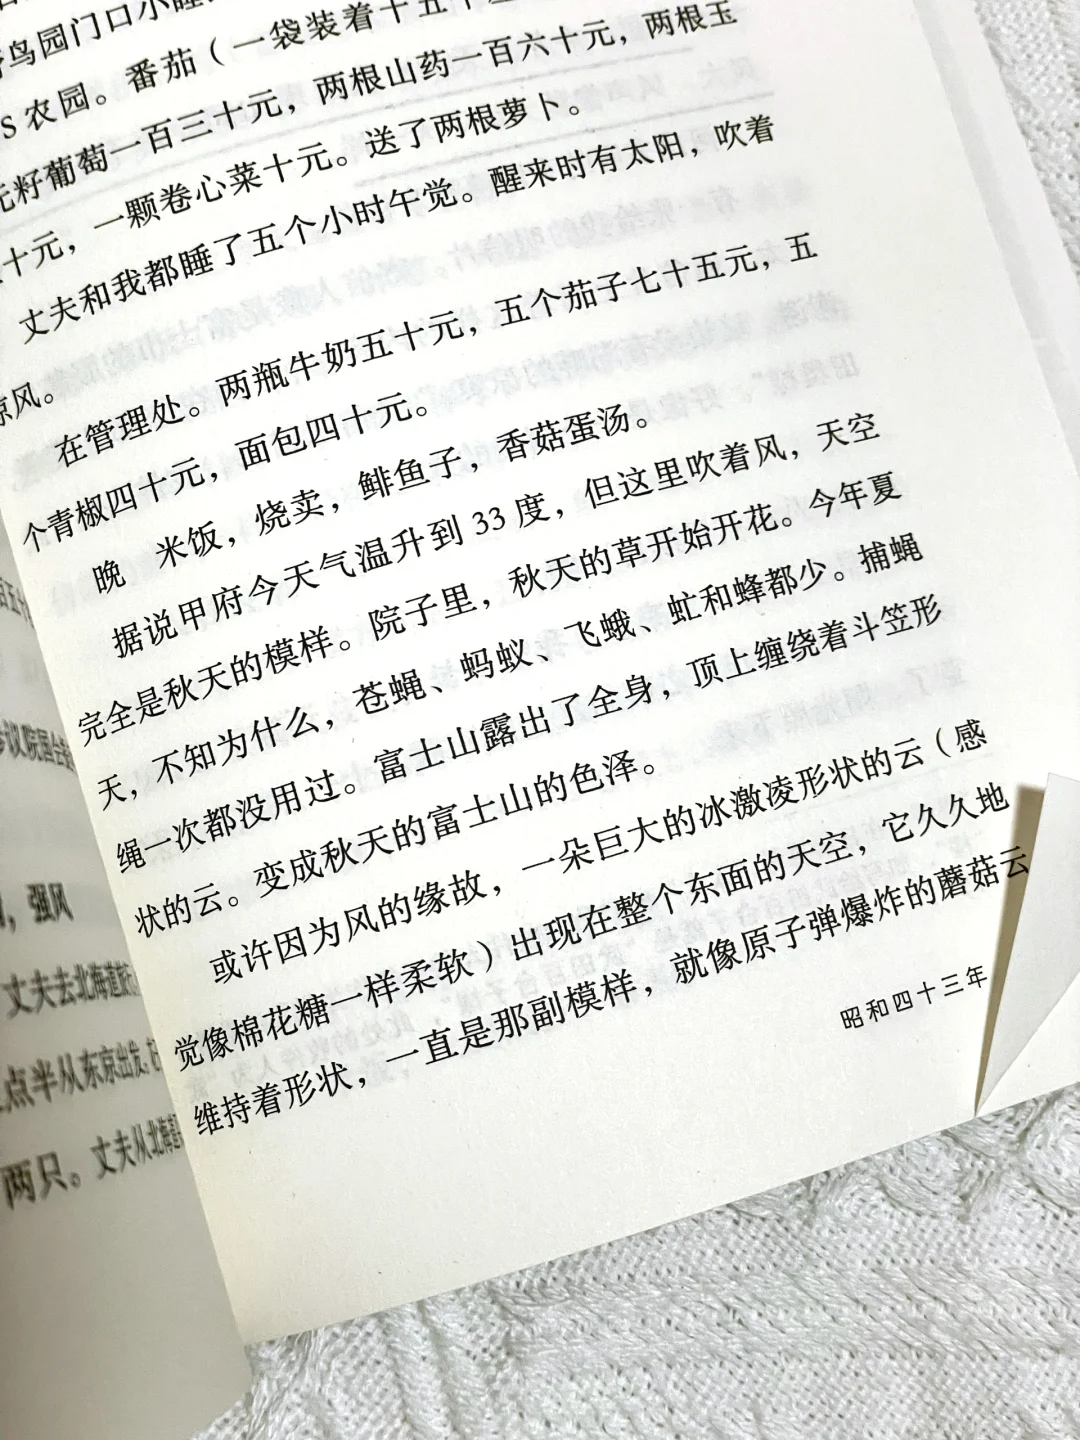 鸟园门口小睡
S 农园。番茄（一袋装着十五个
籽葡萄一百三十元，两根山药一百六十元，两根玉
十元，一颗卷心菜十元。送了两根萝卜。
丈夫和我都睡了五个小时午觉。醒来时有太阳，吹着
凉风。
在管理处。两瓶牛奶五十元，五个茄子七十五元，五
个青椒四十元，面包四十元。
晚　米饭，烧卖，鲱鱼子，香菇蛋汤。
据说甲府今天气温升到 33 度，但这里吹着风，天空
完全是秋天的模样。院子里，秋天的草开始开花。今年夏
天，不知为什么，苍蝇、蚂蚁、飞蛾、虻和蜂都少。捕蝇
绳一次都没用过。富士山露出了全身，顶上缠绕着斗笠形
状的云。变成秋天的富士山的色泽。
或许因为风的缘故，一朵巨大的冰激凌形状的云（感
觉像棉花糖一样柔软）出现在整个东面的天空，它久久地
维持着形状，一直是那副模样，就像原子弹爆炸的蘑菇云
昭和四十三年
，强风
丈夫去北海道
点半从东京出发，
两只。丈夫从北海道